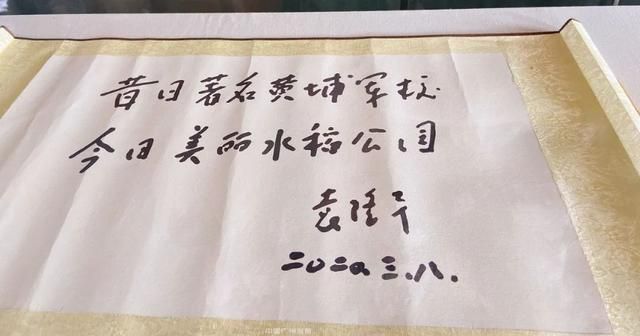 昔日著名黄埔军校
今日美丽水稻公园
袁隆平
二〇二〇三.八.
中国广州发布